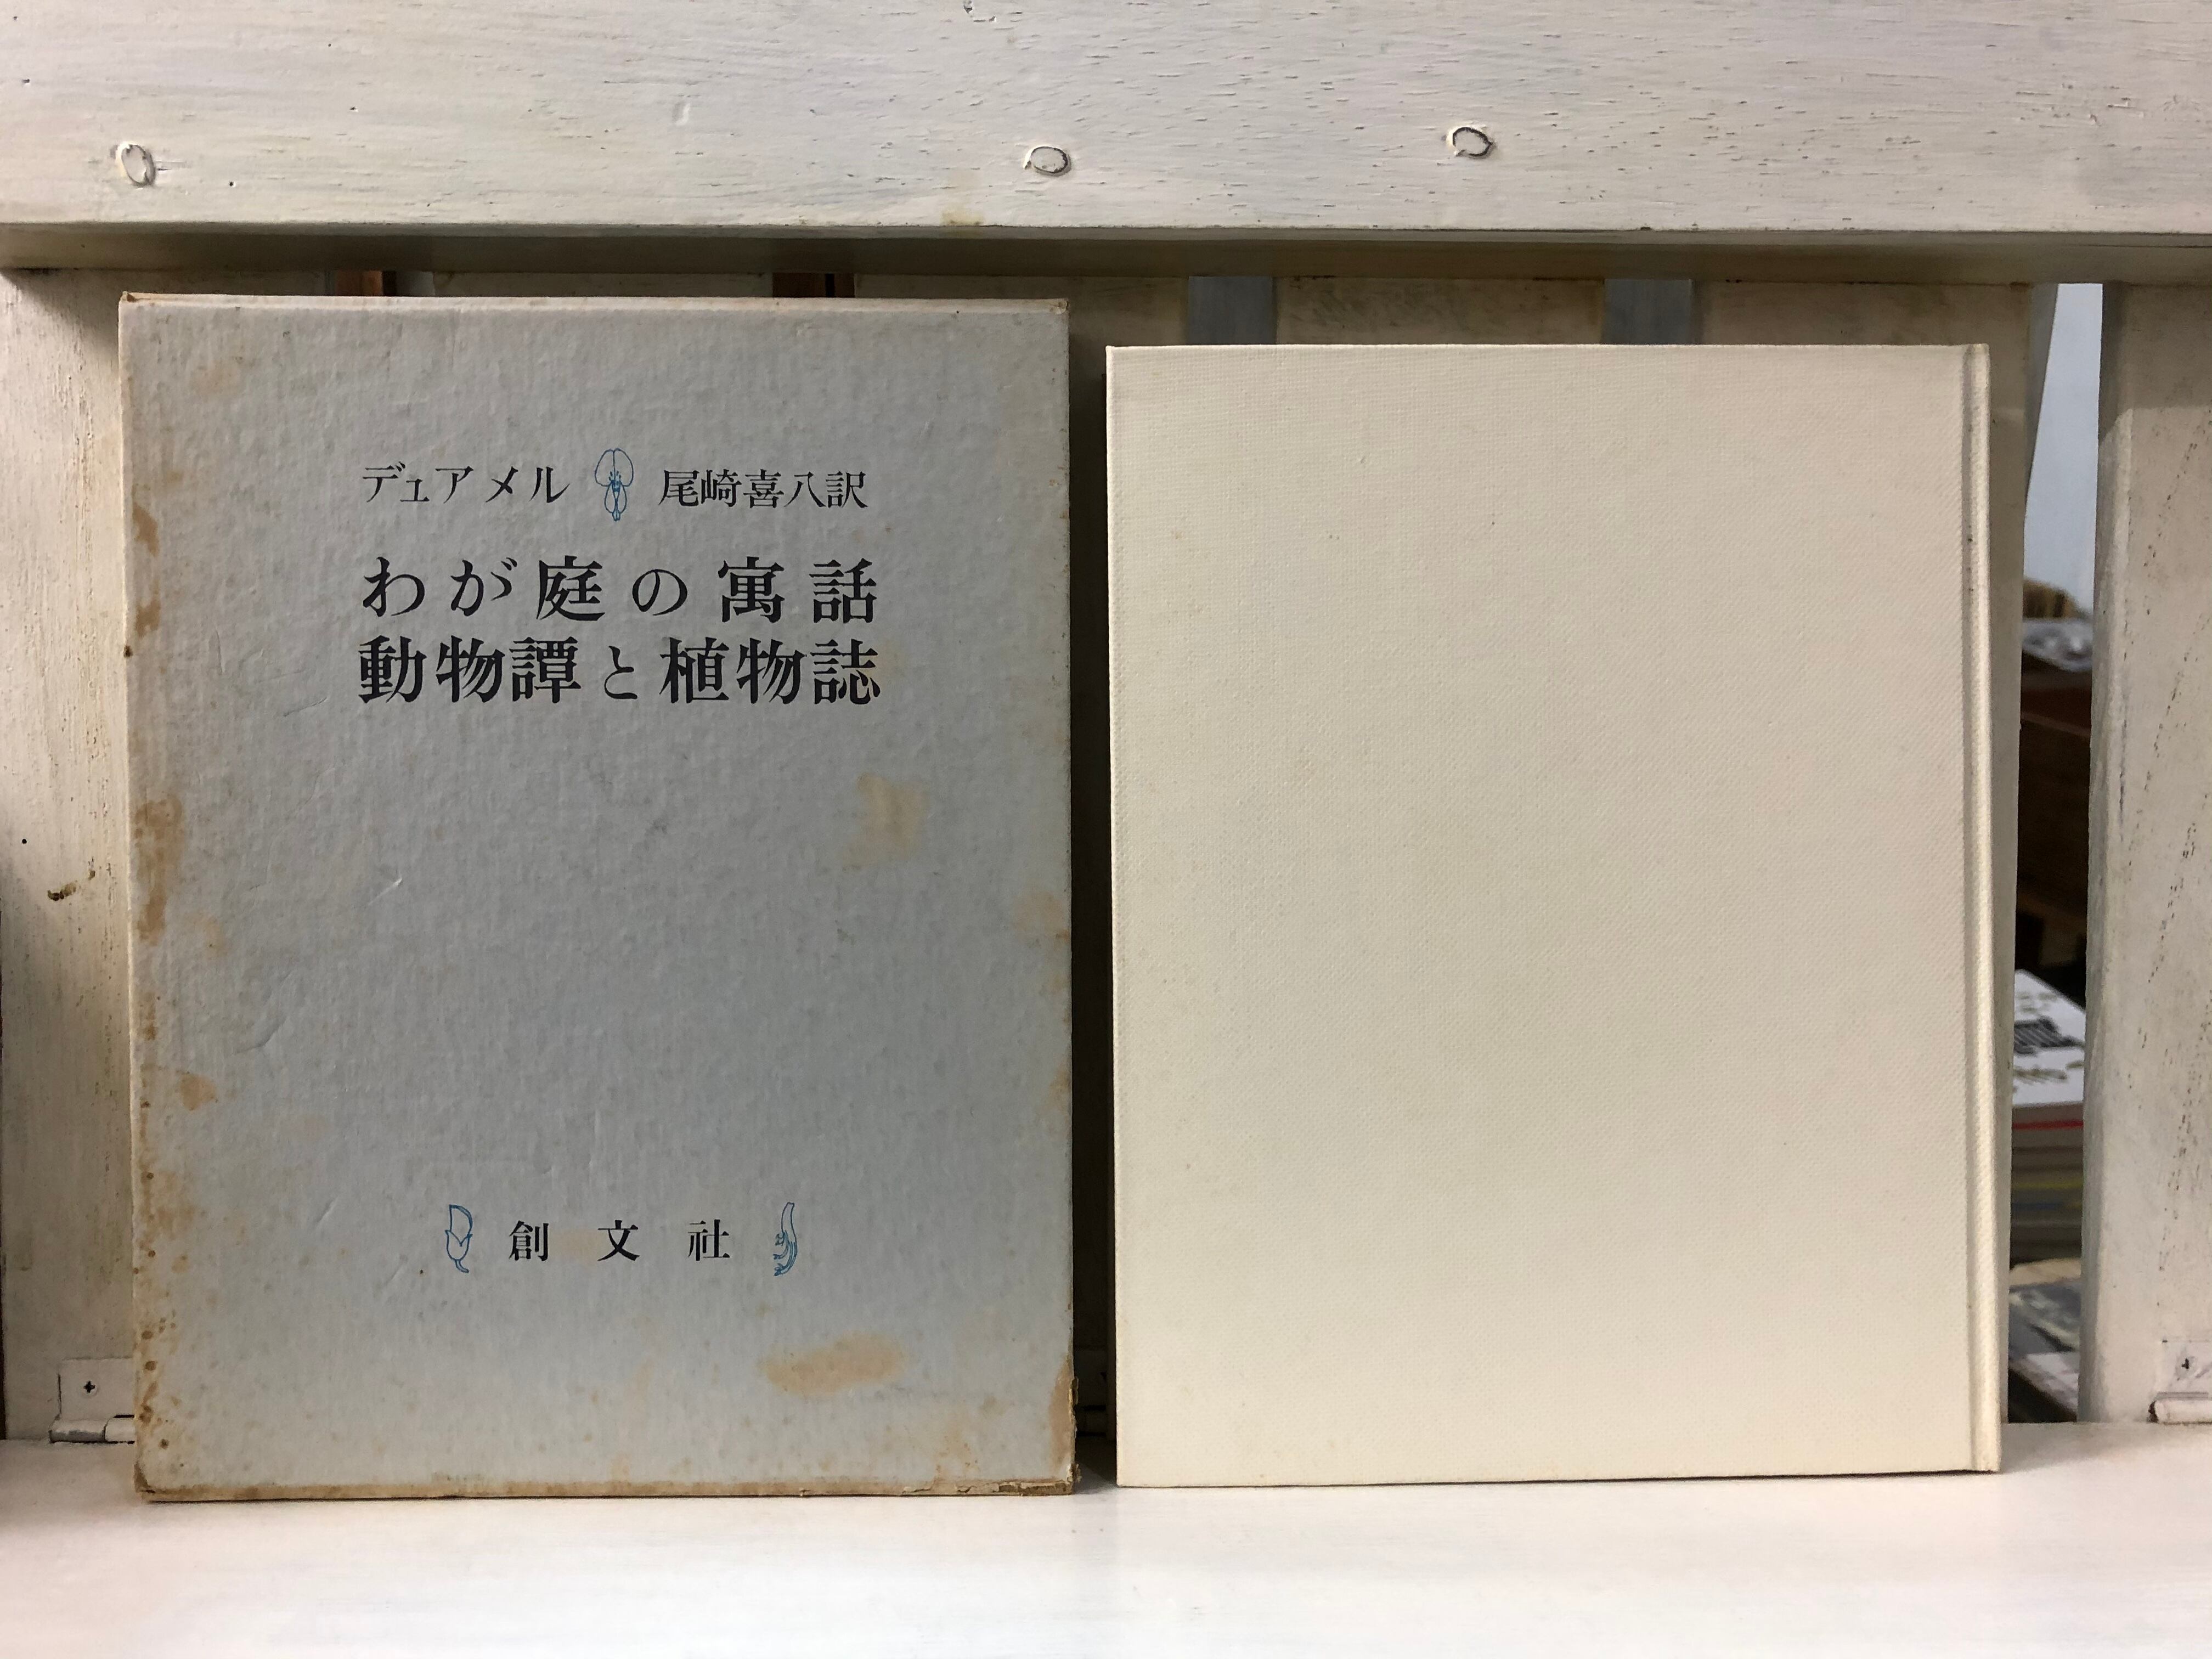 デュアメル 尾崎喜八訳
わが庭の寓話
動物譚と植物誌
創文社